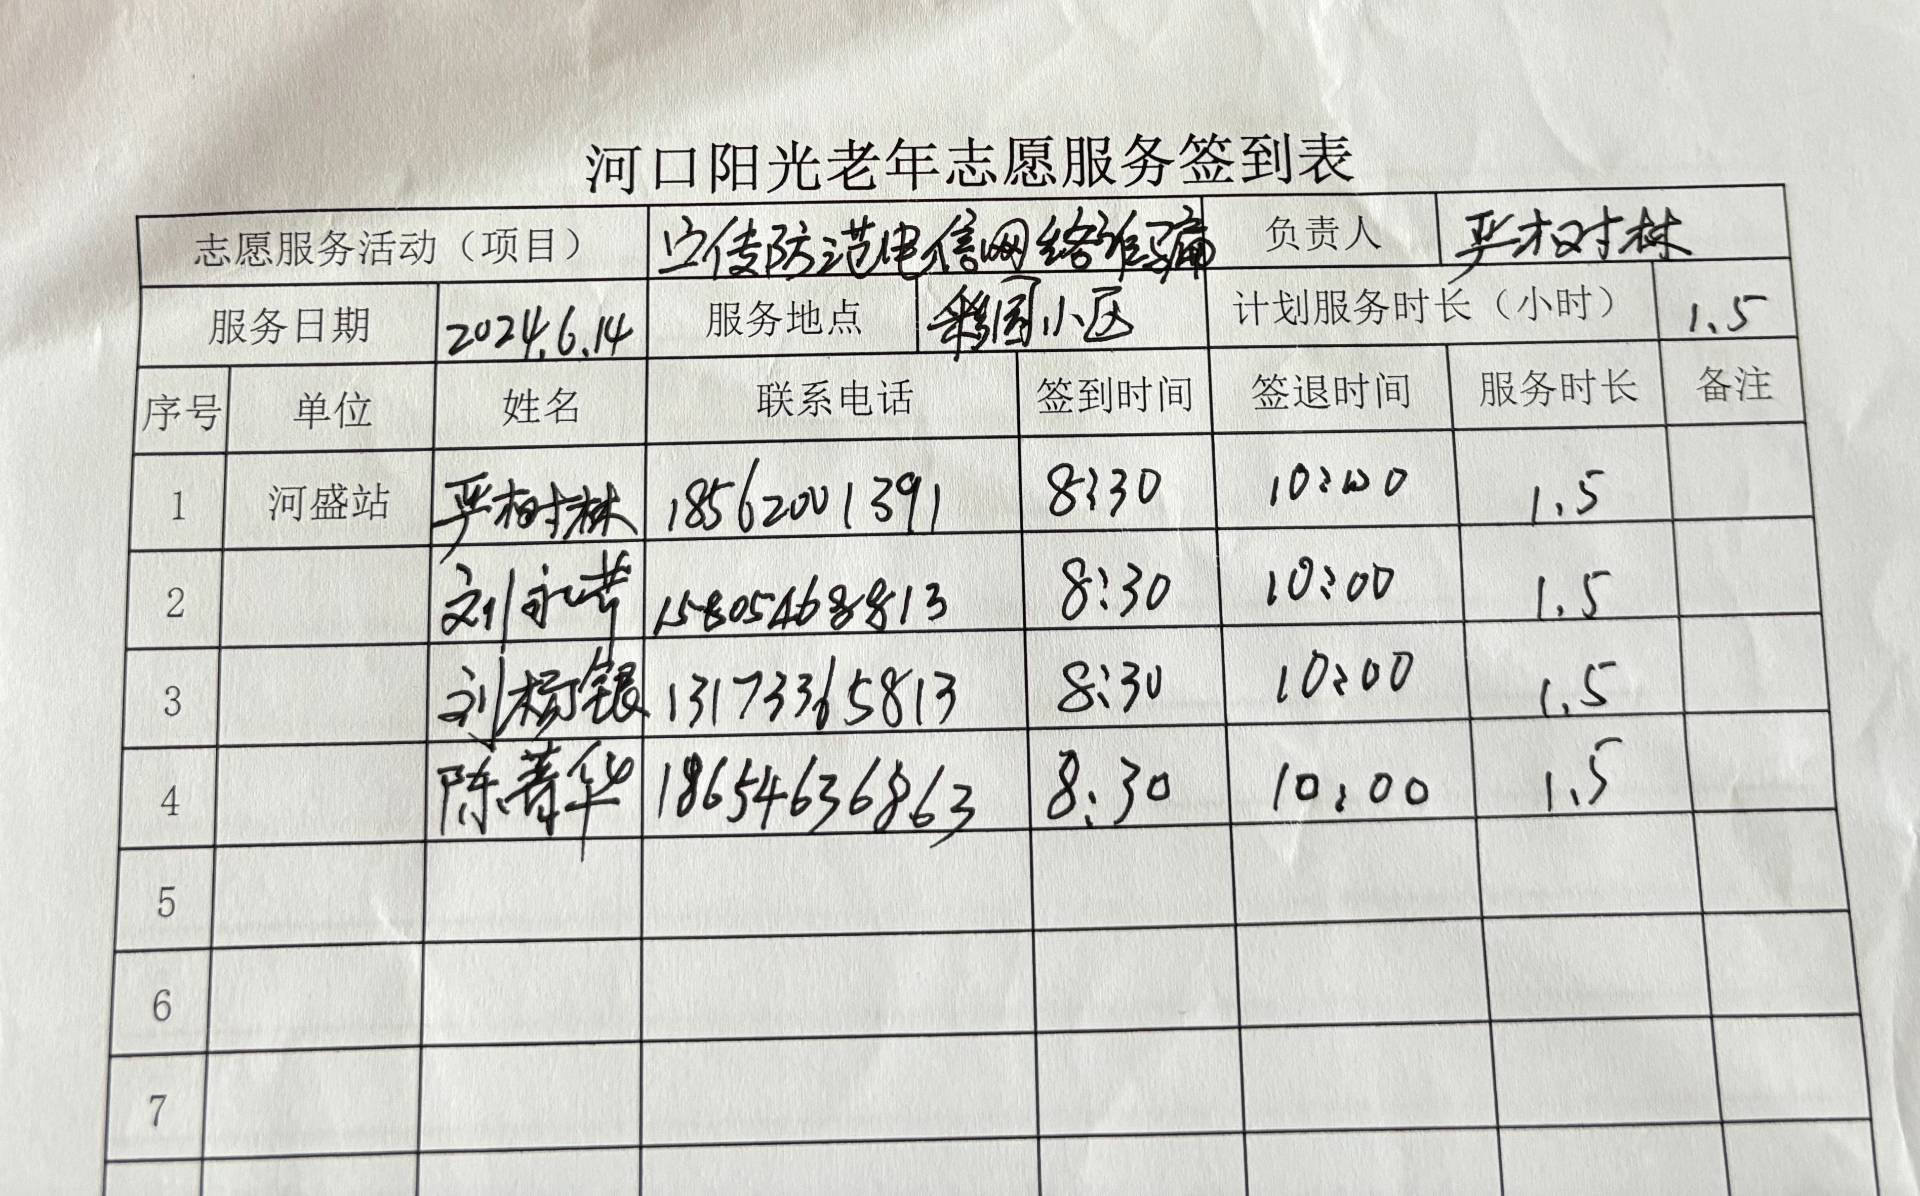 河口阳光老年志愿服务签到表
志愿服务活动（项目） 宣传防范电信网络诈骗 负责人 严树林
服务日期 2024.6.14 服务地点 小区 计划服务时长（小时） 1.5
序号 单位 姓名 联系电话 签到时间 签退时间 服务时长 备注
1 河盛站 严树林 18562001391 8:30 10:00 1.5
2 刘永 15805468813 8:30 10:00 1.5
3 刘杨银 13173365813 8:30 10:00 1.5
4 陈菁华 18654636863 8:30 10:00 1.5
5
6
7